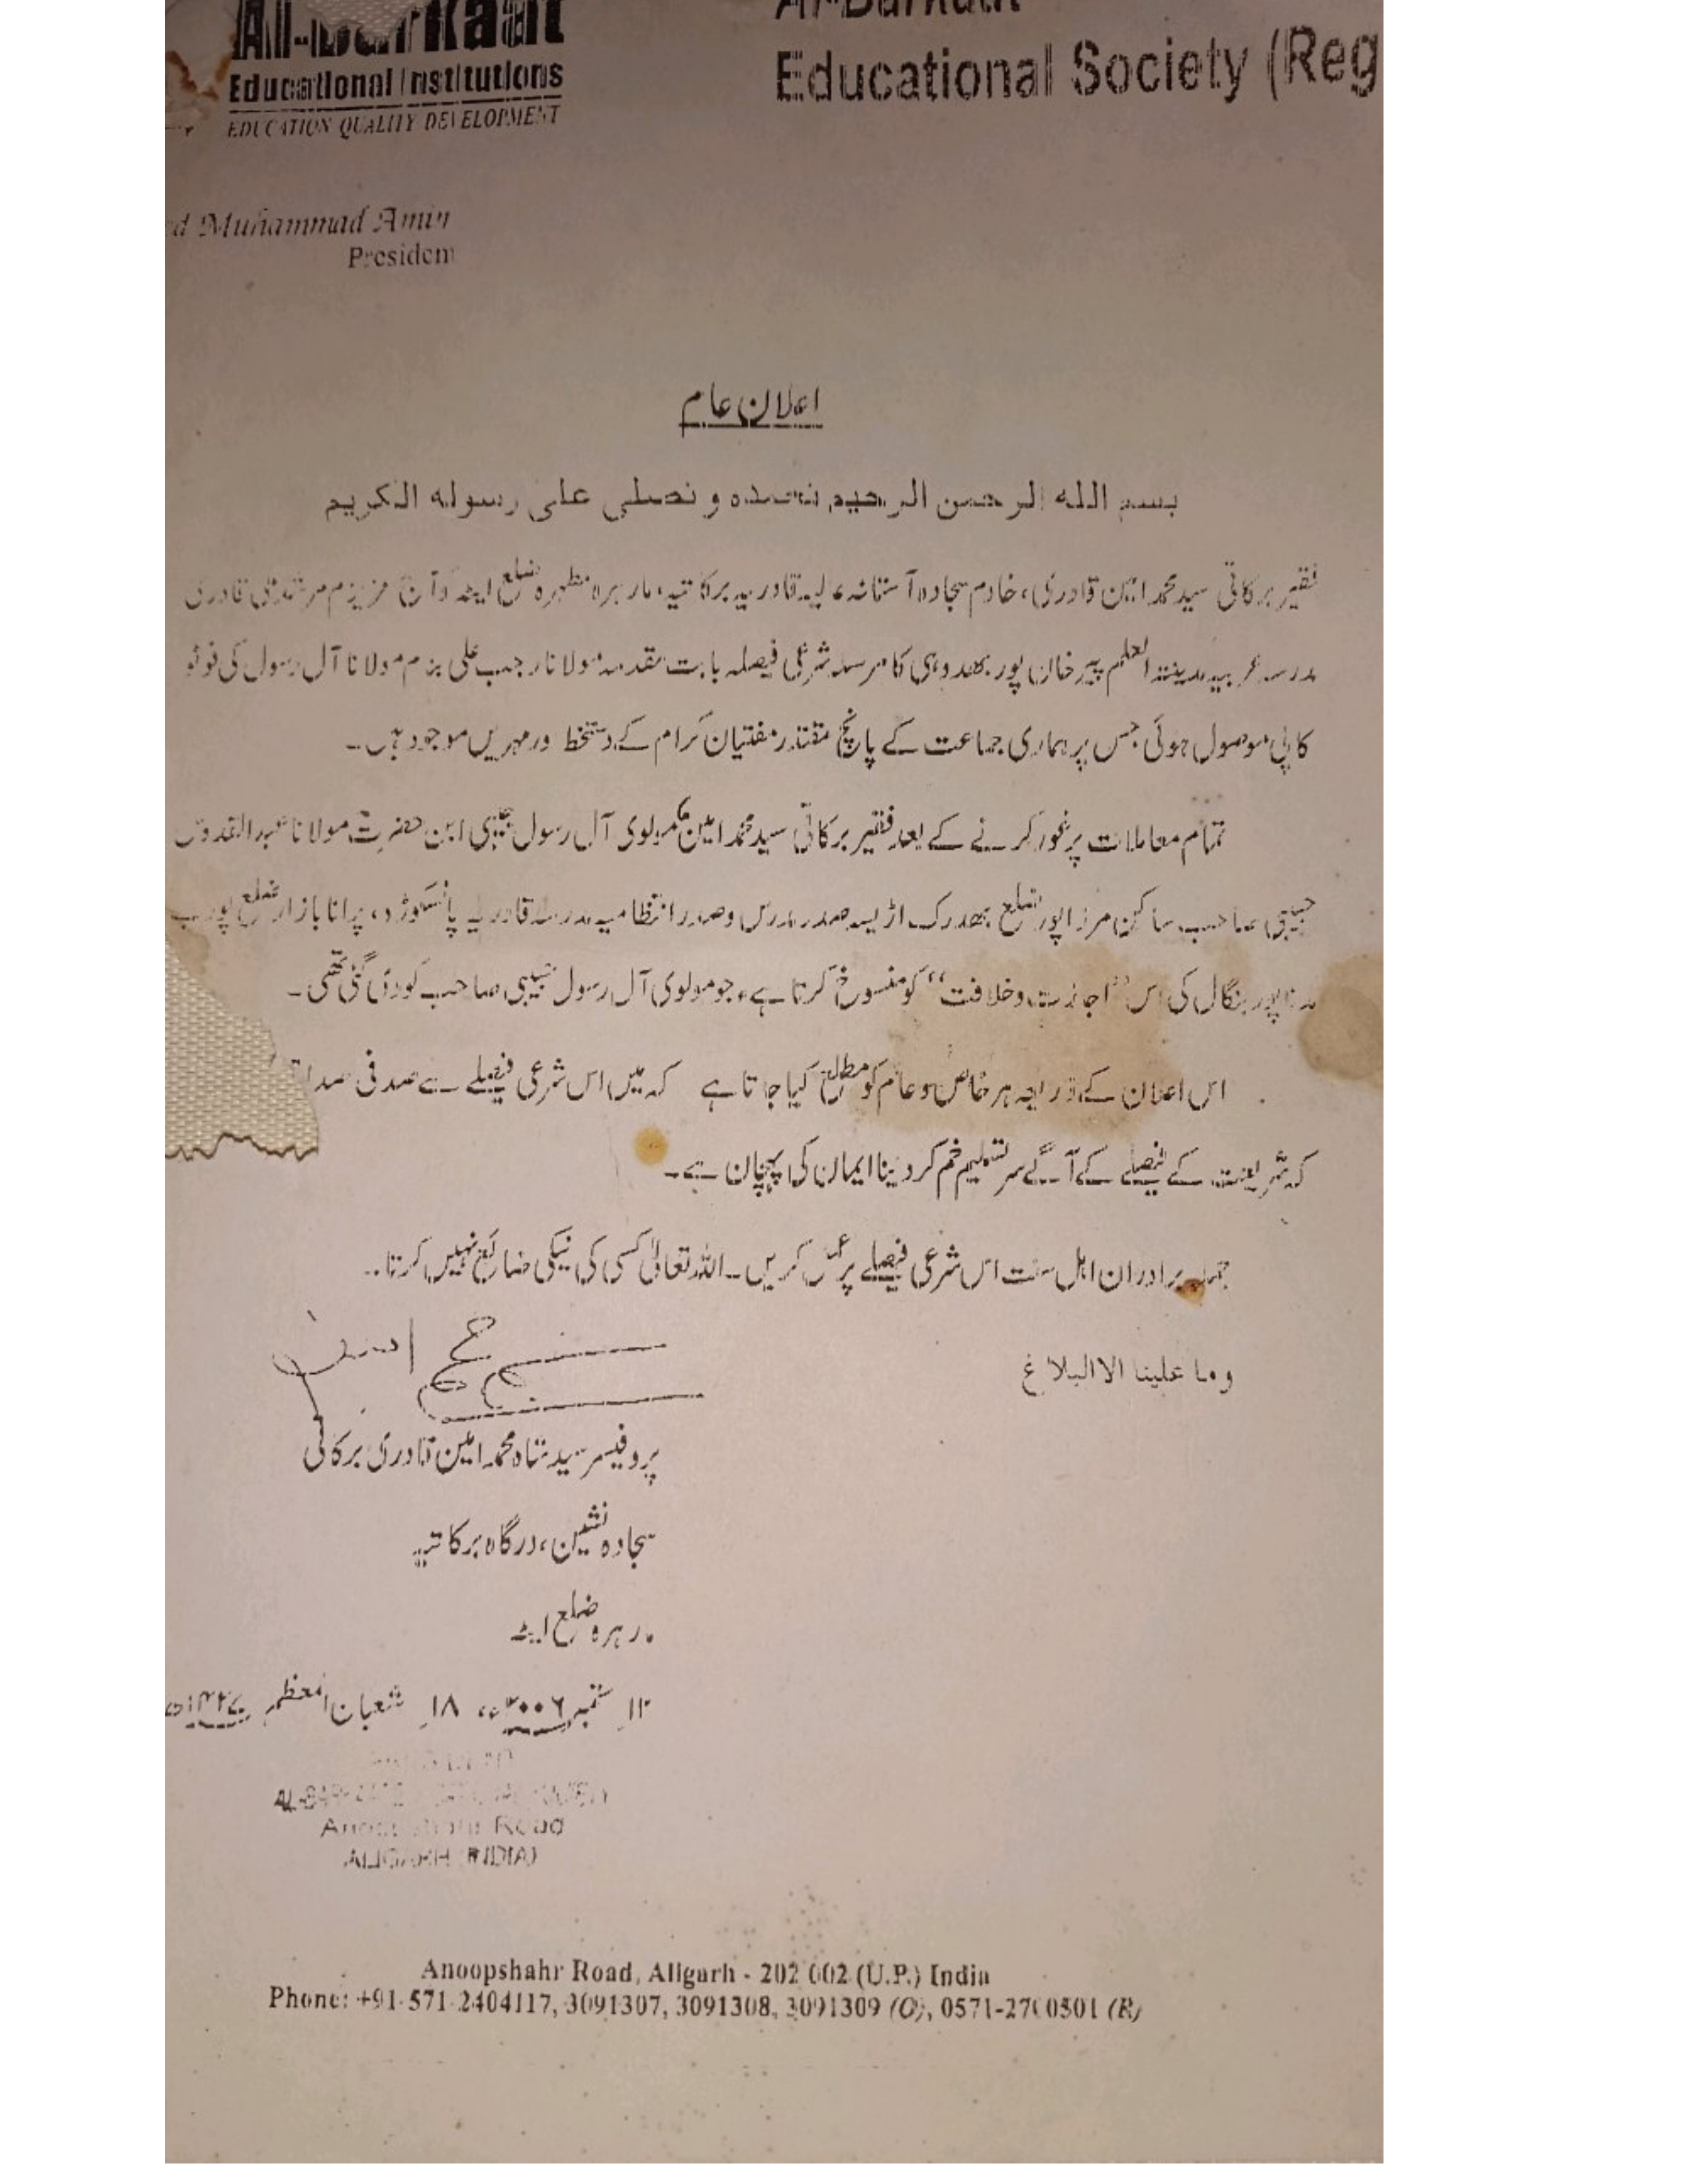 Al-Barkaat
Educational Institutions
EDUCATION QUALITY DEVELOPMENT
Al-Barkaat
Educational Society (Reg
ed Muhammad Amin
President
اعلان عام
بسم الله الرحمن الرحیم نحمده و نصلی علی رسوله الکریم
فقیر برکاتی سید محمد امین قادری، خادم سجادہ آستانہ عالیہ قادریہ برکاتیہ، مارہرہ مطہرہ ضلع ایٹہ کو آج عزیزم مرشد قادری
مدرسہ عربیہ مدینۃ العلم پیر خان پور بھدوہی کا مرسلہ شرعی فیصلہ بابت مقدمہ مولانا رجب علی بزم مولانا آل رسول کی فوٹو
کاپی موصول ہوئی جس پر ہماری جماعت کے پانچ مقتدر مفتیان کرام کے دستخط اور مہریں موجود ہیں۔
تمام معاملات پر غور کرنے کے بعد فقیر برکاتی سید محمد امین مولوی آل رسول حبیبی ابن حضرت مولانا عبد القدوس
حبیبی صاحب ساکن مرزاپور ضلع بھدرک اڑیسہ صدر مدرس وصدر انتظامیہ مدرسہ قادریہ پانسکوڑہ، پرانا بازار ضلع پورب
مدناپور بنگال کی اس "اجازت وخلافت" کو منسوخ کرتا ہے، جو مولوی آل رسول حبیبی صاحب کو دی گئی تھی۔
اس اعلان کے ذریعہ ہر خاص و عام کو مطلع کیا جاتا ہے کہ میں اس شرعی فیصلے سے صد فی صد
کہ شریعت کے فیصلے کے آگے سر تسلیم خم کر دینا ایمان کی پہچان ہے۔
جملہ برادران اہل سنت اس شرعی فیصلے پر عمل کریں۔ اللہ تعالیٰ کسی کی نیکی ضائع نہیں کرتا۔
وما علینا الا البلاغ
پروفیسر سید شاہ محمد امین قادری برکاتی
سجادہ نشین، درگاہ برکاتیہ
مارہرہ ضلع ایٹہ
۱۲؍ ستمبر ۲۰۰۶ء، ۱۸؍ شعبان المعظم ۱۴۲۷ھ
Anoopshahr Road
ALIGARH (INDIA)
Anoopshahr Road, Aligarh - 202 002 (U.P.) India
Phone: +91-571-2404117, 3091307, 3091308, 3091309 (O), 0571-2700501 (R)